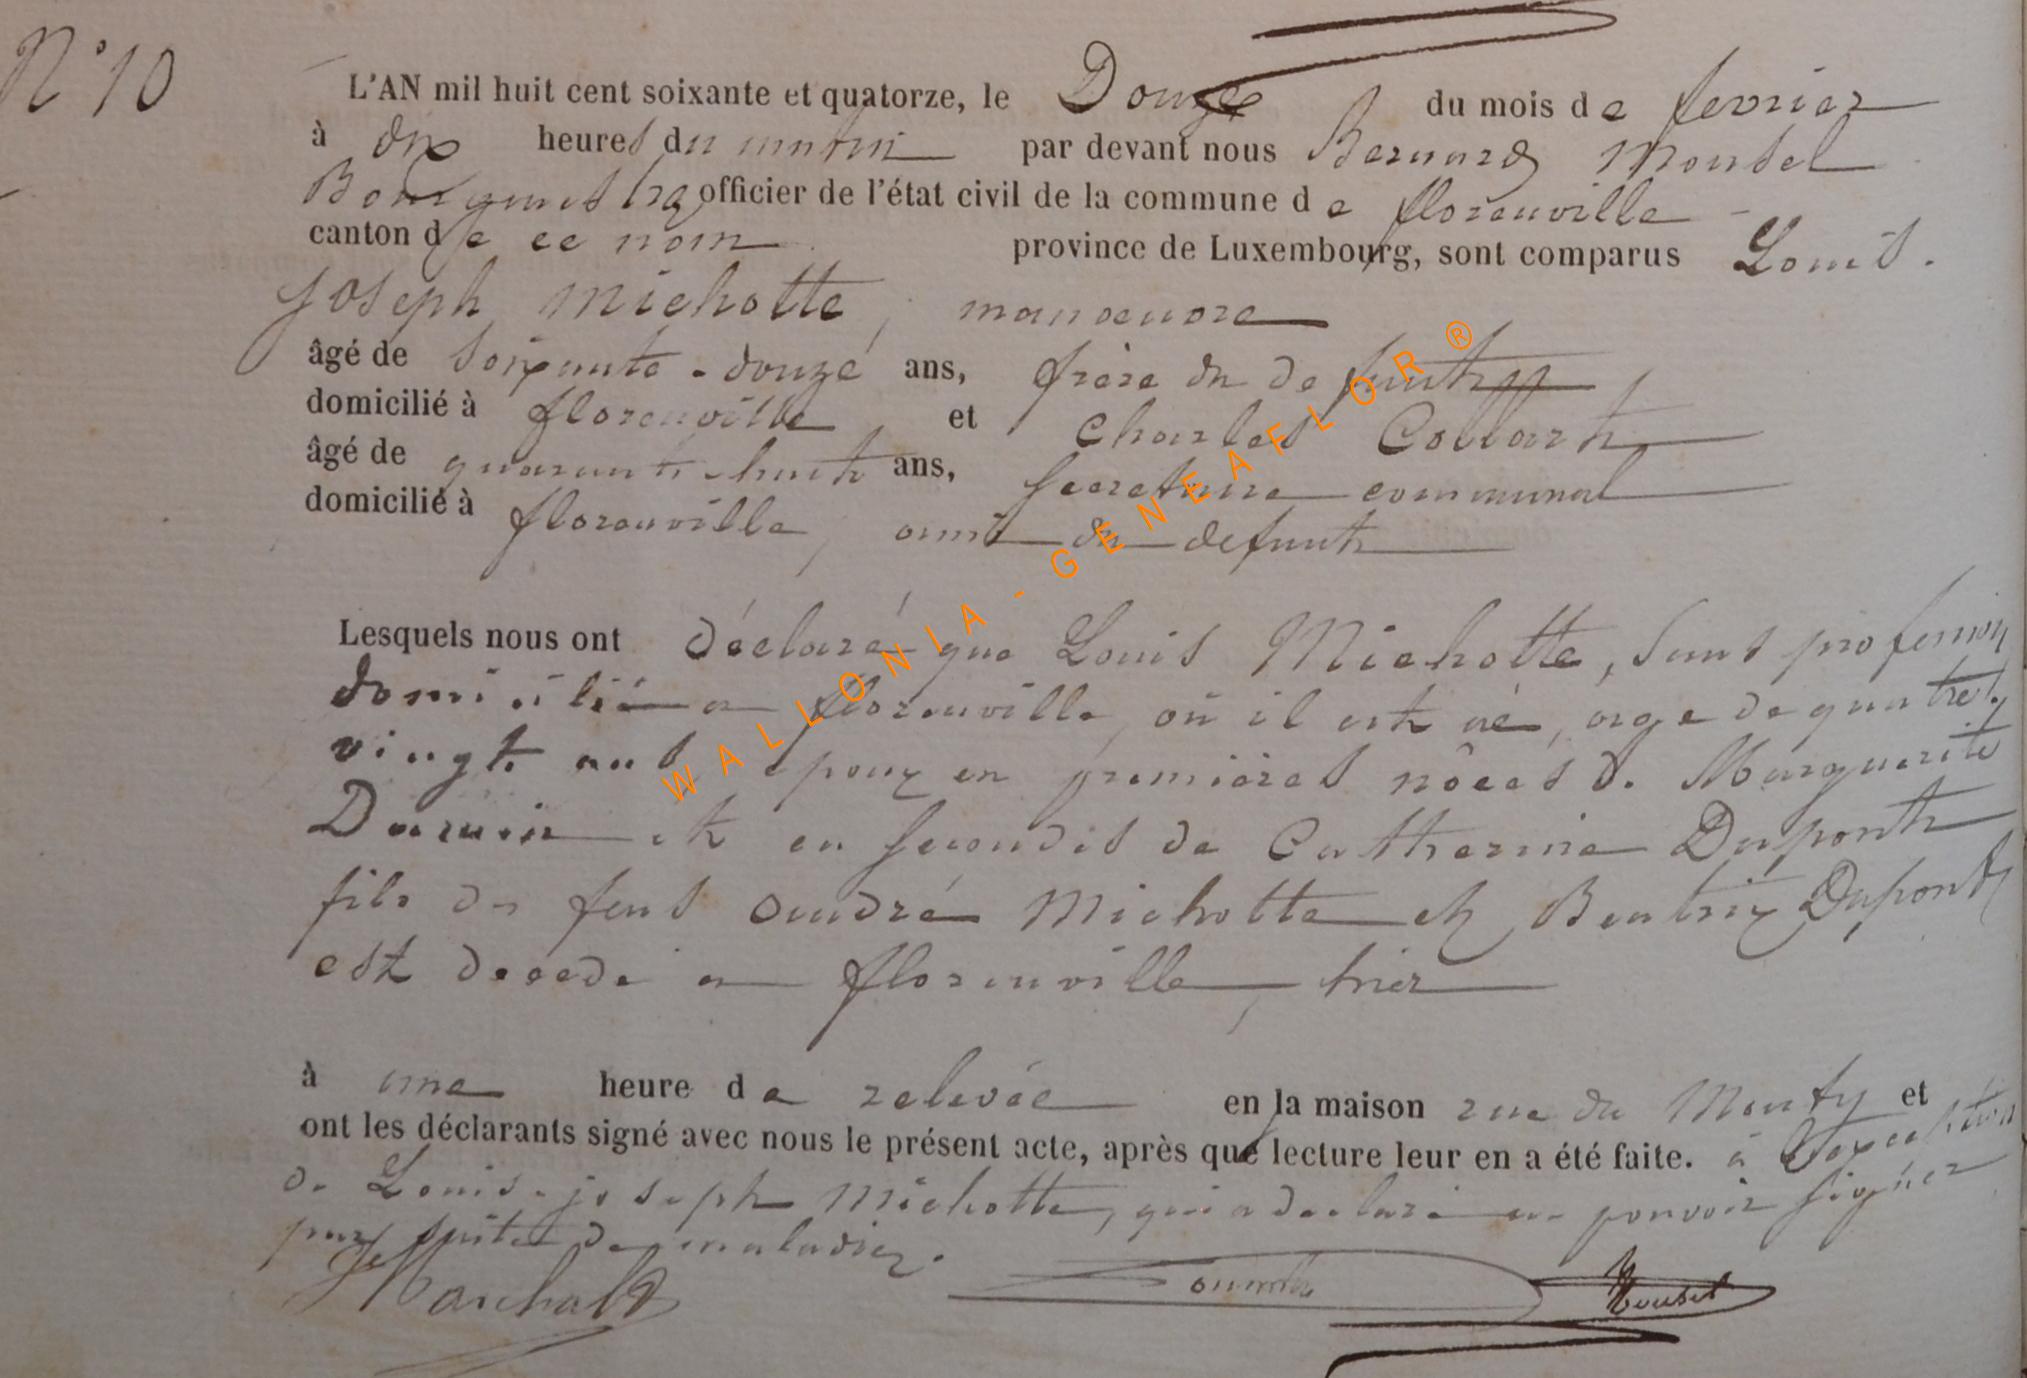 N° 10
L'AN mil huit cent soixante et quatorze, le Douze du mois de fevrier
à dix heures du matin par devant nous Bernard Mousel
Bourgmestre officier de l'état civil de la commune de florenville
canton de ce nom province de Luxembourg, sont comparus Louis
joseph Michotte, manoeuvre
âgé de soixante-douze ans, frère du defunt
domicilié à florenville et Charles Collart
âgé de quarante-huit ans, secretaire communal
domicilié à florenville, ami du defunt
Lesquels nous ont déclaré que Louis Michotte, sans profession
domicilié a florenville, où il est né, age de quatre
vingt ans, epoux en premières nôces de Marguerite
et en secondes de Catherine Dupont
fils de feus André Michotte et Beatrix Dupont
est decede a florenville, hier
à une heure de relevée en la maison rue du Menty et
ont les déclarants signé avec nous le présent acte, après que lecture leur en a été faite. à l'exception
de Louis-joseph Michotte, qui a declaré ne pouvoir signer
par suite de maladie.
Mousel
WALLONIA - GENEAFLOR ®